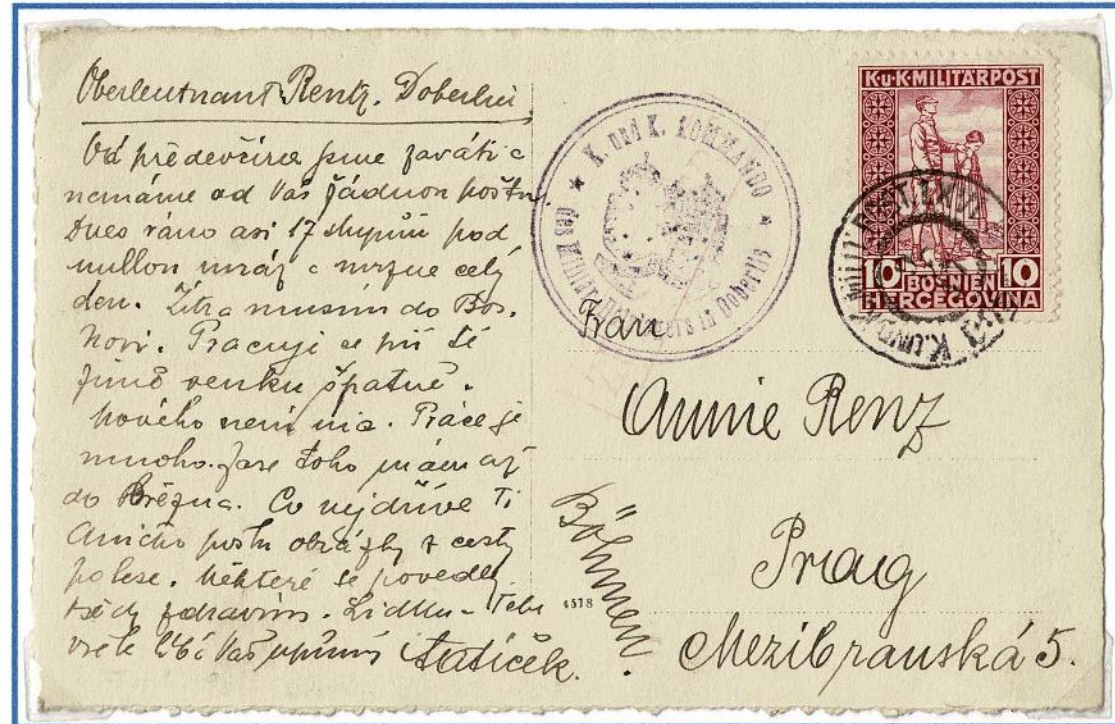 Oberleutnant Rentz. Doberlin
Od předevčíra jsme zaváti a
nemáme od Vás žádnou poštu.
Dnes ráno asi 17 stupňů pod
nullou mráz a mrzne celý
den. Zítra musím do Bos.
Novi. Pracuji se při té
zimě venku špatně.
Nového není nic. Práce je
mnoho. Zase toho mám až
do Března. Co nejdříve Ti
Aničko pošlu obrázky z cesty
Některé se povedly.
zdravím. Lidku - Tebe
vřele líbí Váš upřímný tatíček.
K. UND K. KOMMANDO
des Militär in Doberlin
K.u.K.MILITÄRPOST
10 BOSNIEN 10
HERCEGOVINA
K.UND K.
Frau
Annie Renz
Böhmen.
Prag
Mezibranská 5.
4578